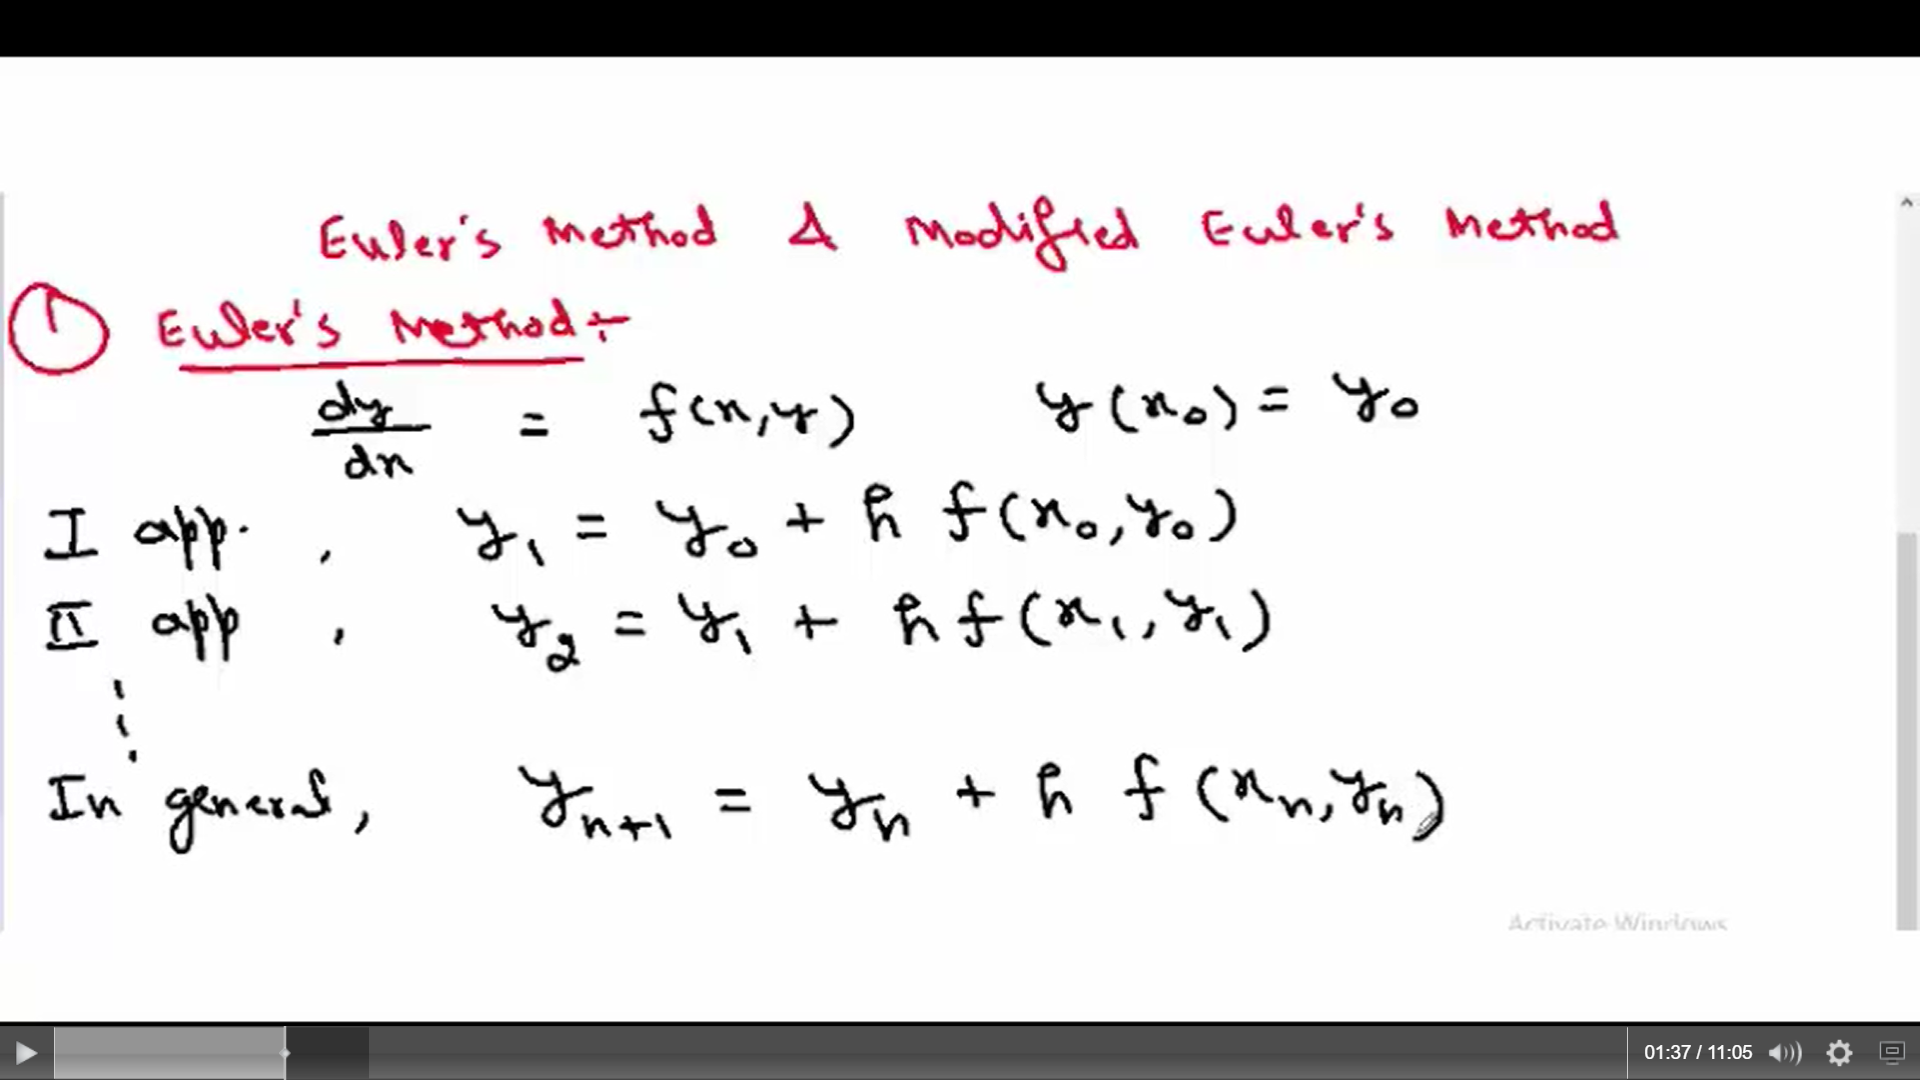 Euler's Method & Modified Euler's Method
1 Euler's Method:-
dy/dx = f(x,y) y(x₀) = y₀
I app. , y₁ = y₀ + h f(x₀,y₀)
II app , y₂ = y₁ + h f(x₁,y₁)
In general, yₙ₊₁ = yₙ + h f(xₙ,yₙ)
Activate Windows
01:37 / 11:05